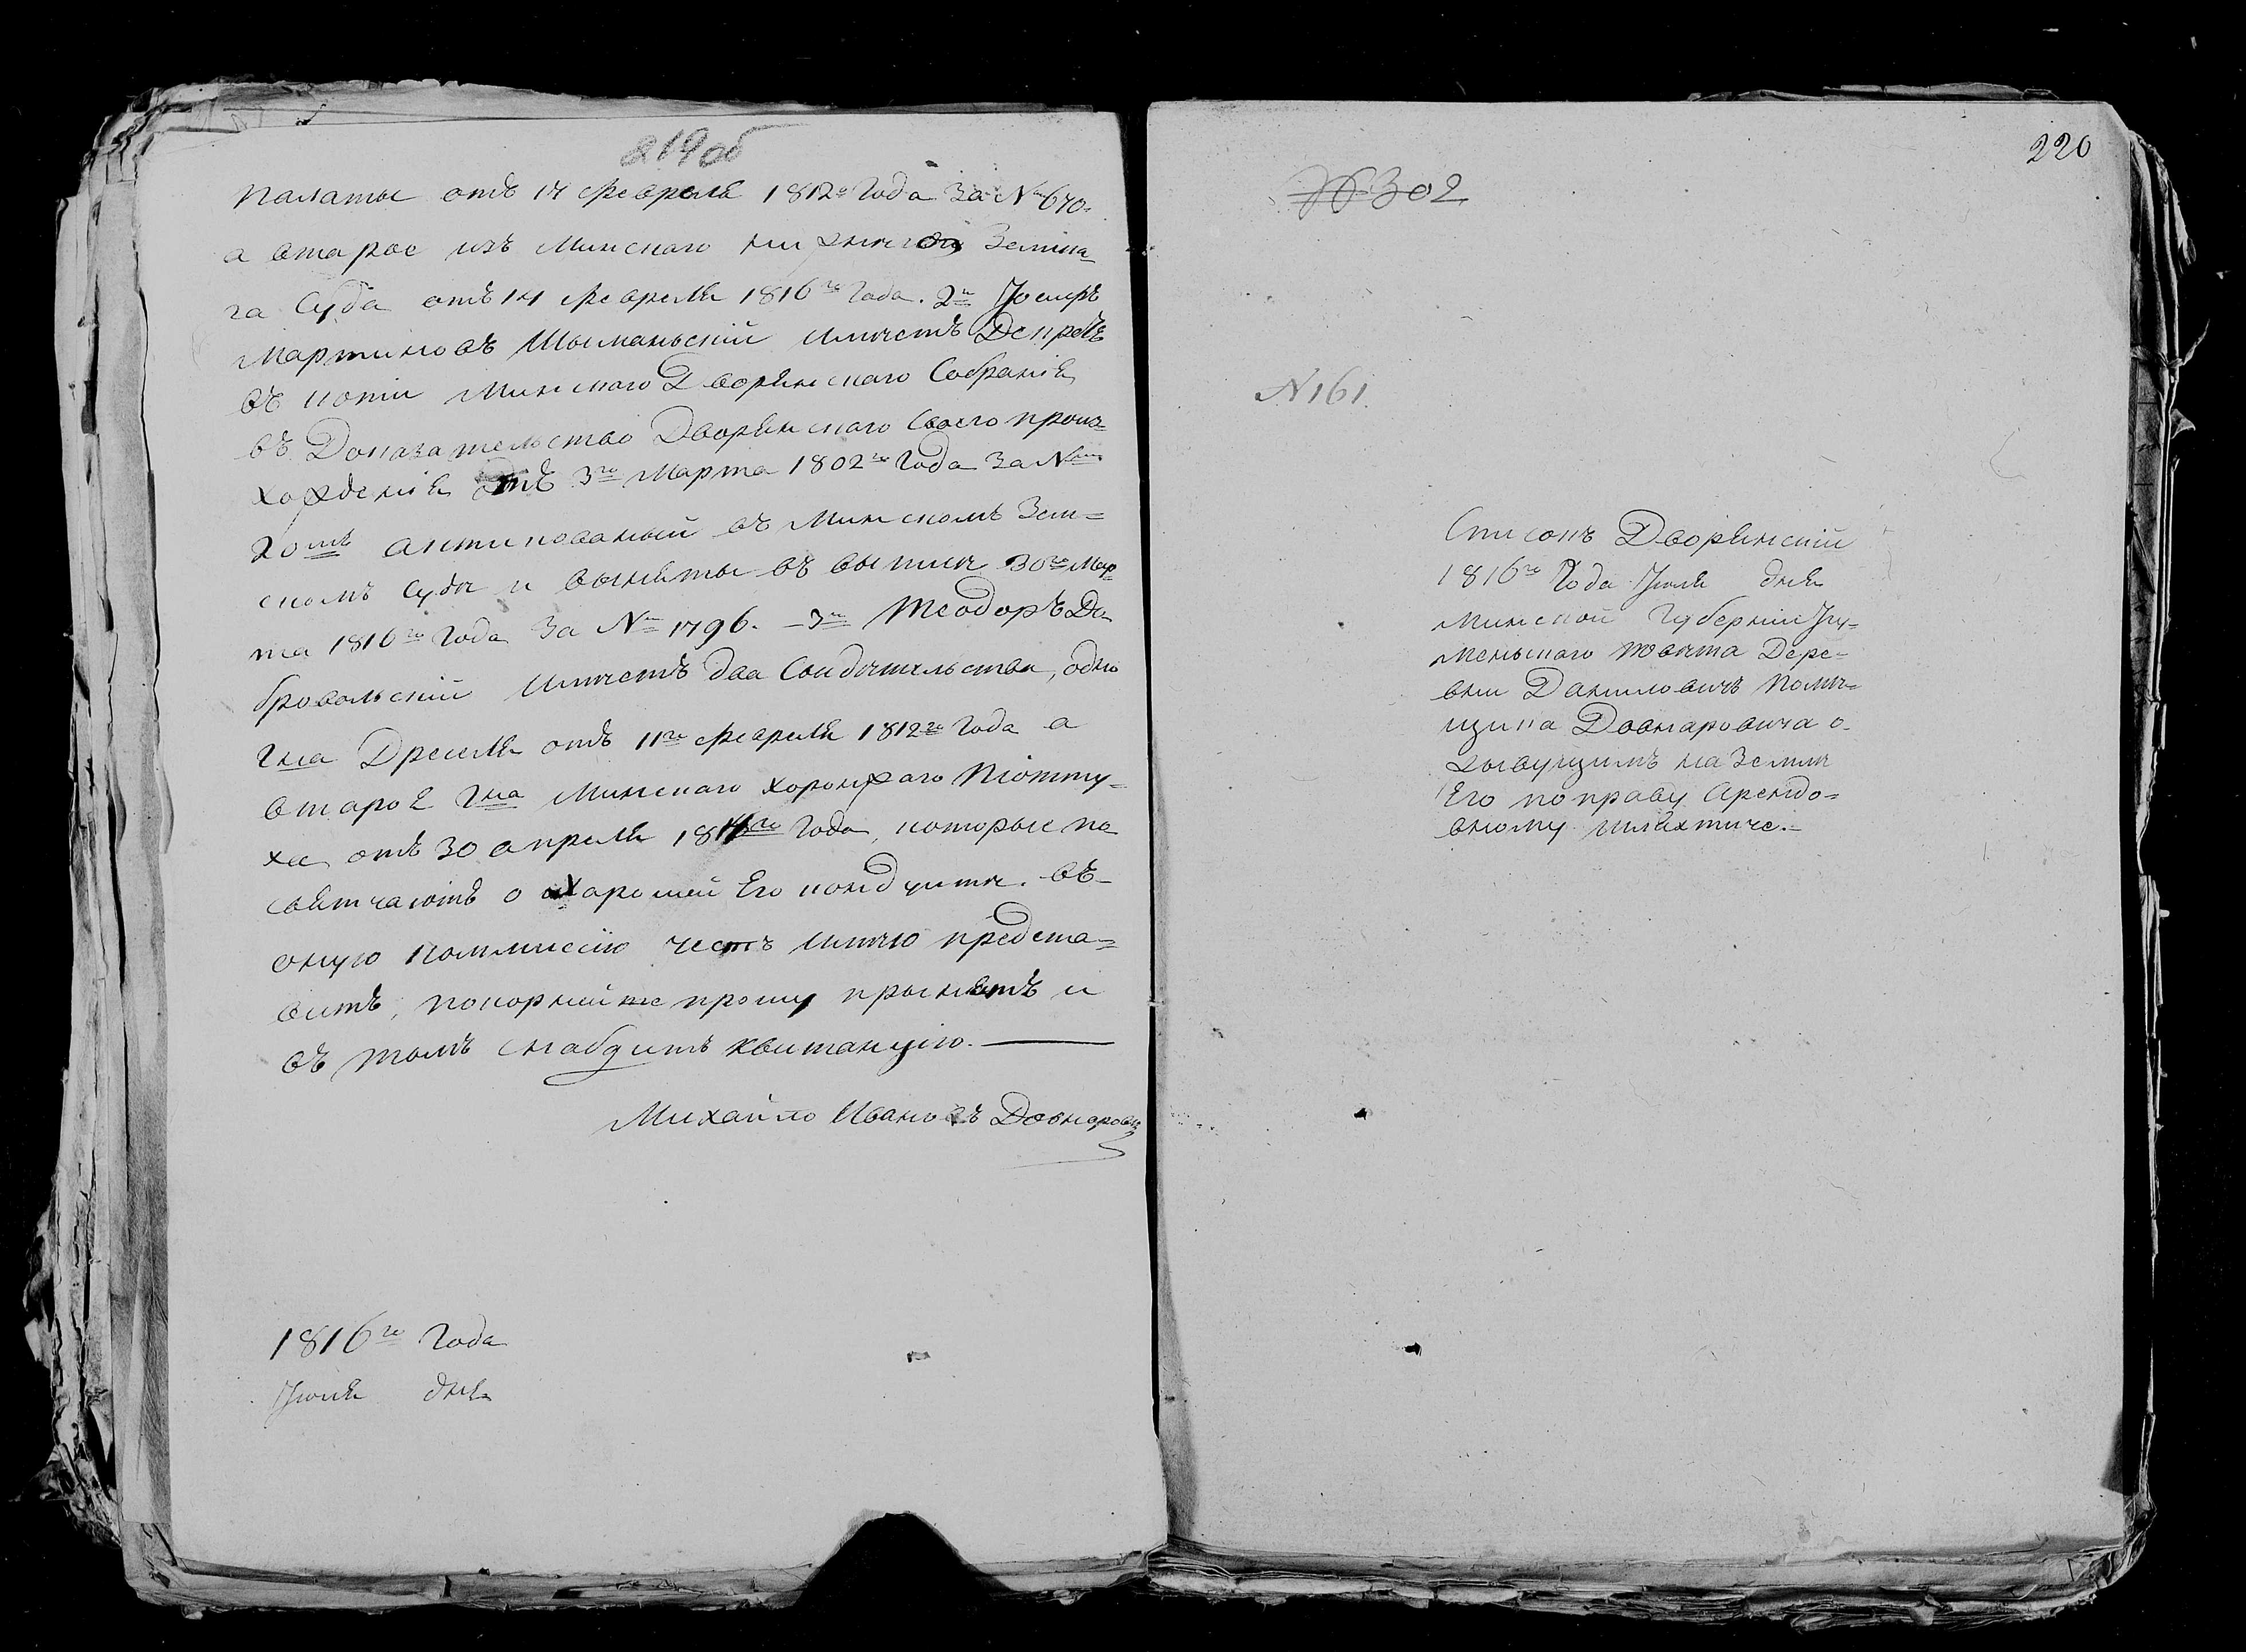 219об
палаты отъ 14 февраля 1812го Года За Nм 670.
а второе изъ Минскаго нижняго Земска-
га Суда отъ 14 февраля 1816го Года. 2й Іосифъ
Мартиновъ Шыманьскій имѣетъ Декретъ
въ копіи Минскаго Дворянскаго Собранія
въ Доказательство Дворянскаго Своего произ=
хожденія отъ 3го Марта 1802го Года За Nмъ
20мъ актикованый въ Минскомъ Зем=
скомъ Судѣ и выняты въ выписѣ 30го Мар-
та 1816го Года За Nм 1796. – 3й Теодоръ До-
бровольскій имѣетъ два Свидѣтельства, одно
Гна Дреиля отъ 11го февраля 1812го Года а
второе Гна Минскаго хоронжаго Піотту-
ха отъ 30 апреля 1814го Года, которые па
свѣтчаютъ о харошей Его кондуитѣ. въ
оную Коммиссію честь имѣю предста=
вить, покорнейше прошу прынять и
въ томъ снабдить квитанцію.
Михайло Ивановъ Довнаровичъ
1816го Года
Іюля дня
220
№ 302
N161.
Списокъ Дворянскій
1816го Года Іюля дня
Минской Губерніи Игу-
меньскаго Повѣта Дере-
вни Даниловичъ Помѣ-
щика Довнаровича о
жывущимъ на Землѣ
Его по праву Арендо=
вному шляхтиче.–